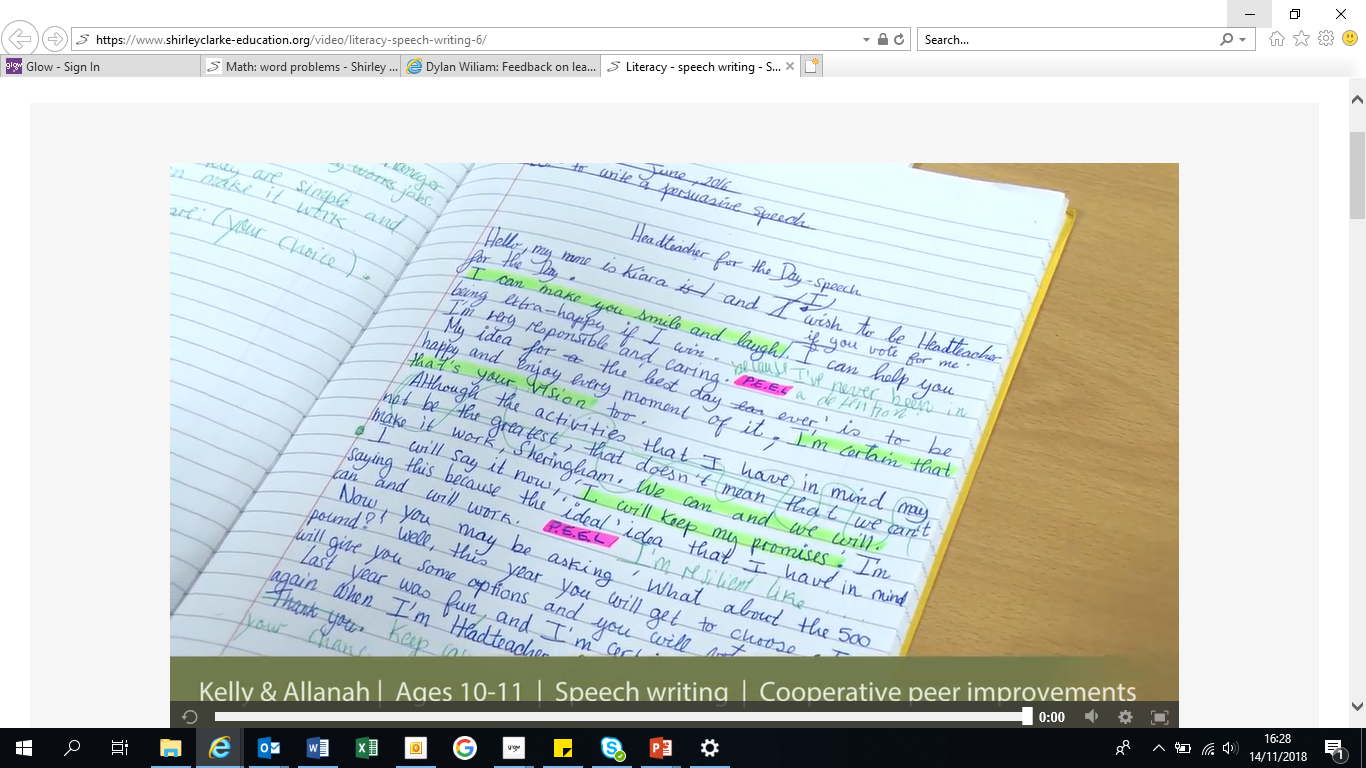 https://www.shirleyclarke-education.org/video/literacy-speech-writing-6/
Search...
Glow - Sign In
Math: word problems - Shirley ...
Dylan Wiliam: Feedback on lea...
Literacy - speech writing - S...
works jobs.
they are simple and
make it work
are: (your choice).
June, 2016
to write a persuasive speech
Headteacher for the Day - speech
Hello, my name is Kiara is I and I, I wish to be Headteacher
for the Day. if you vote for me.
I can make you smile and laugh. I can help you
being extra-happy if I win. because I've never been in
I'm very responsible and caring. P.E.E.L a detention
My idea for a the best day ever' is to be
happy and enjoy every moment of it, I'm certain that
that's your vision too.
Although the activities that I have in mind may
not be the greatest, that doesn't mean that we can't
make it work, Sheringham. We can and we will.
I will say it now, I will keep my promises. I'm
saying this because the 'ideal' idea that I have in mind
can and will work. P.E.E.L I'm resilient like ...
Now, you may be asking, 'What about the 500
pound?' Well, this year you will get to choose. I
will give you some options and you will not
Last year was fun, and I'm
again when I'm Headteacher
Thank you. Keep
your chance
Kelly & Allanah | Ages 10-11 | Speech writing | Cooperative peer improvements
0:00
16:28
14/11/2018